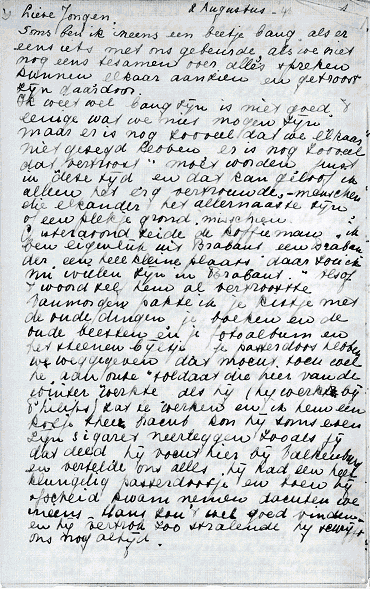 Lieve Jongen. 2 Augustus
Soms ben ik ineens een beetje bang als er
eens iets met ons gebeurde als we niet
nog eens tesamen over alles spreken
kunnen elkaar aanzien en getroost
zijn daardoor.
Ik weet wel bang zijn is niet goed 't
eenige wat we niet mogen zijn
maar er is nog zooveel dat we elkaar
niet gezegd hebben er is nog zooveel
dat vertroost moet worden juist
in deze tijd en dat kan geloof ik
alleen het erg vertrouwde - menschen
die elkander het allernaaste zijn
of een plekje grond misschien.
Gisteravond zeide de koffieman "ik
ben eigenlijk uit Brabant een Braban
der een heel kleine plaats" daar zou ik
nu willen zijn in Brabant." Alsof
't woord zelf hem al vertroostte
Vanmorgen pakte ik je kistje met
de oude dingen je boeken en de
oude beesten en je fotoalbum en
het steenen bijltje je passerdoos hebben
we weggegeven dat mocht toch wel
hè, aan onze soldaat die hier van de
winter werkte als hij (hij werkte bij
Philips) zat te werken en ik hem een
kopje thee bracht kon hij soms even
zijn sigaret neerleggen zooals jij
dat deed hij vocht hier bij Valkenburg
en vertelde ons alles hij had een heel
klungelig passerdoosje en toen hij
afscheid kwam nemen dachten we
ineens Hans zou 't wel goed vinden
en hij vertrok zoo stralende hij schrijft
ons nog altijd.